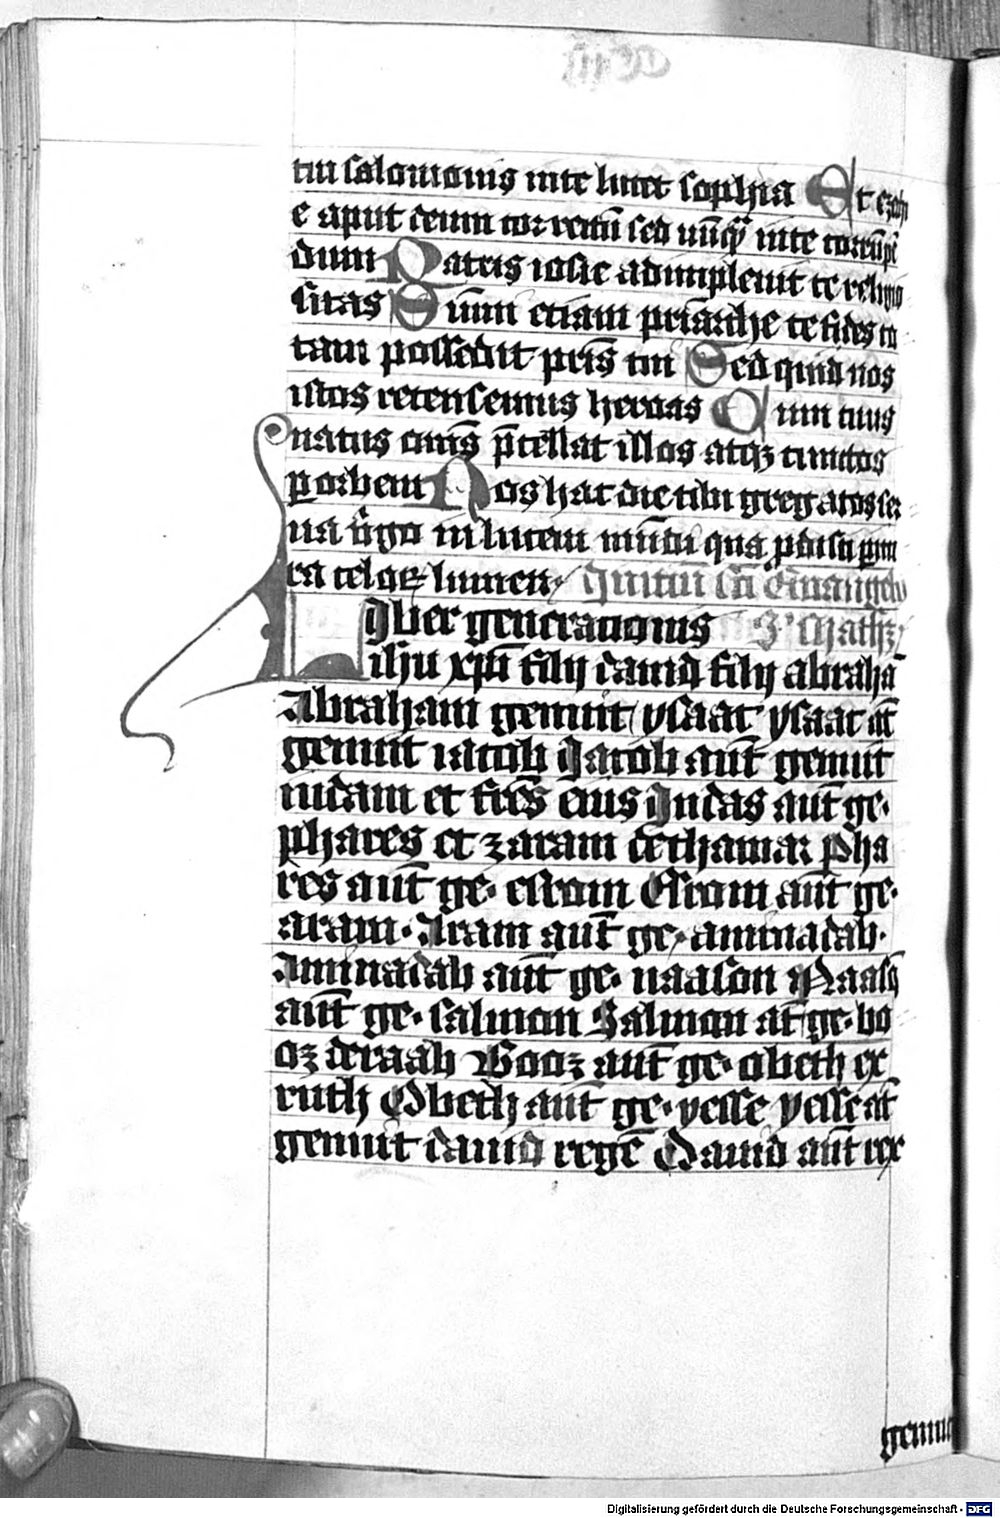 tui salomonis inte lucet sophia Et ezechi
e aput deum cor rectũ sed nũq̃ inte corrũpẽ
dum Patris iosie adimpleuit te religio
sitas Sũmi etiam priarche te fides tu
tam possedit pris̃ tui Sed quid nos
istos recensemus heroas Cum tuus
natus om̃s p̃cellat illos atqꝫ cunctos
ꝑ orbem Nos hac die tibi gregatos ser
ua v̂go in lucem mũdi qua ꝓdisti pari
ra celoꝝ lumen Initiũ sc̃i Euangelij
Liber generationis
ihu xp̃i filij dauid filij abrahã
Abraham genuit ysaac ysaac at̃
genuit iacob Jacob aut̃ genuit
iudam et fr̃es eius Judas aut̃ ge·
phares et zaram dethamar Pha
res aut̃ ge· esrom Esrom aut̃ ge·
aram· Aram aut̃ ge· aminadab·
Aminadab aut̃ ge· naason Naasõ
aut̃ ge· salmon Salmon at̃ ge· bo
oz deraab Booz aut̃ ge· obeth ex
ruth Obeth aut̃ ge· yesse yesse at̃
genuit dauid regẽ Dauid aut̃ rex
genuit
Digitalisierung gefördert durch die Deutsche Forschungsgemeinschaft - DFG